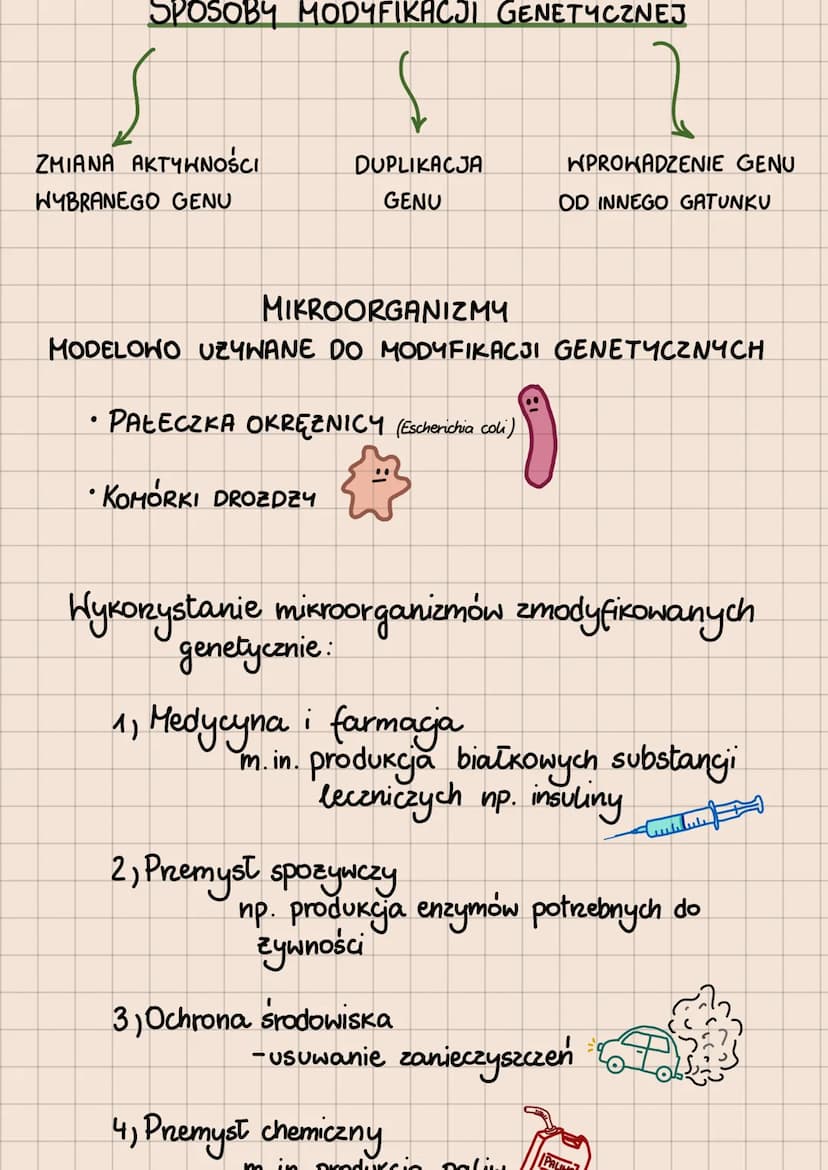 SPOSOBY MODYFIKACJI GENETYCZNEJ
ZMIANA AKTYWNOŚCI
WYBRANEGO GENU
DUPLIKACJA
GENU
WPROWADZENIE GENU
OD INNEGO GATUNKU
MIKROORGANIZMY
MODELOWO UŻYWANE DO MODYFIKACJI GENETYCZNYCH
• PAŁECZKA OKRĘŻNICY (Escherichia coli)
• KOMÓRKI DROŻDŻY
Wykorzystanie mikroorganizmów zmodyfikowanych
genetycznie:
1) Medycyna i farmacja
m.in. produkcja białkowych substancji
leczniczych np. insuliny
2) Przemysł spożywczy
np. produkcja enzymów potrzebnych do
żywności
3) Ochrona środowiska
- usuwanie zanieczyszczeń
4) Przemysł chemiczny
m.in. produkcja paliw
PALIWO